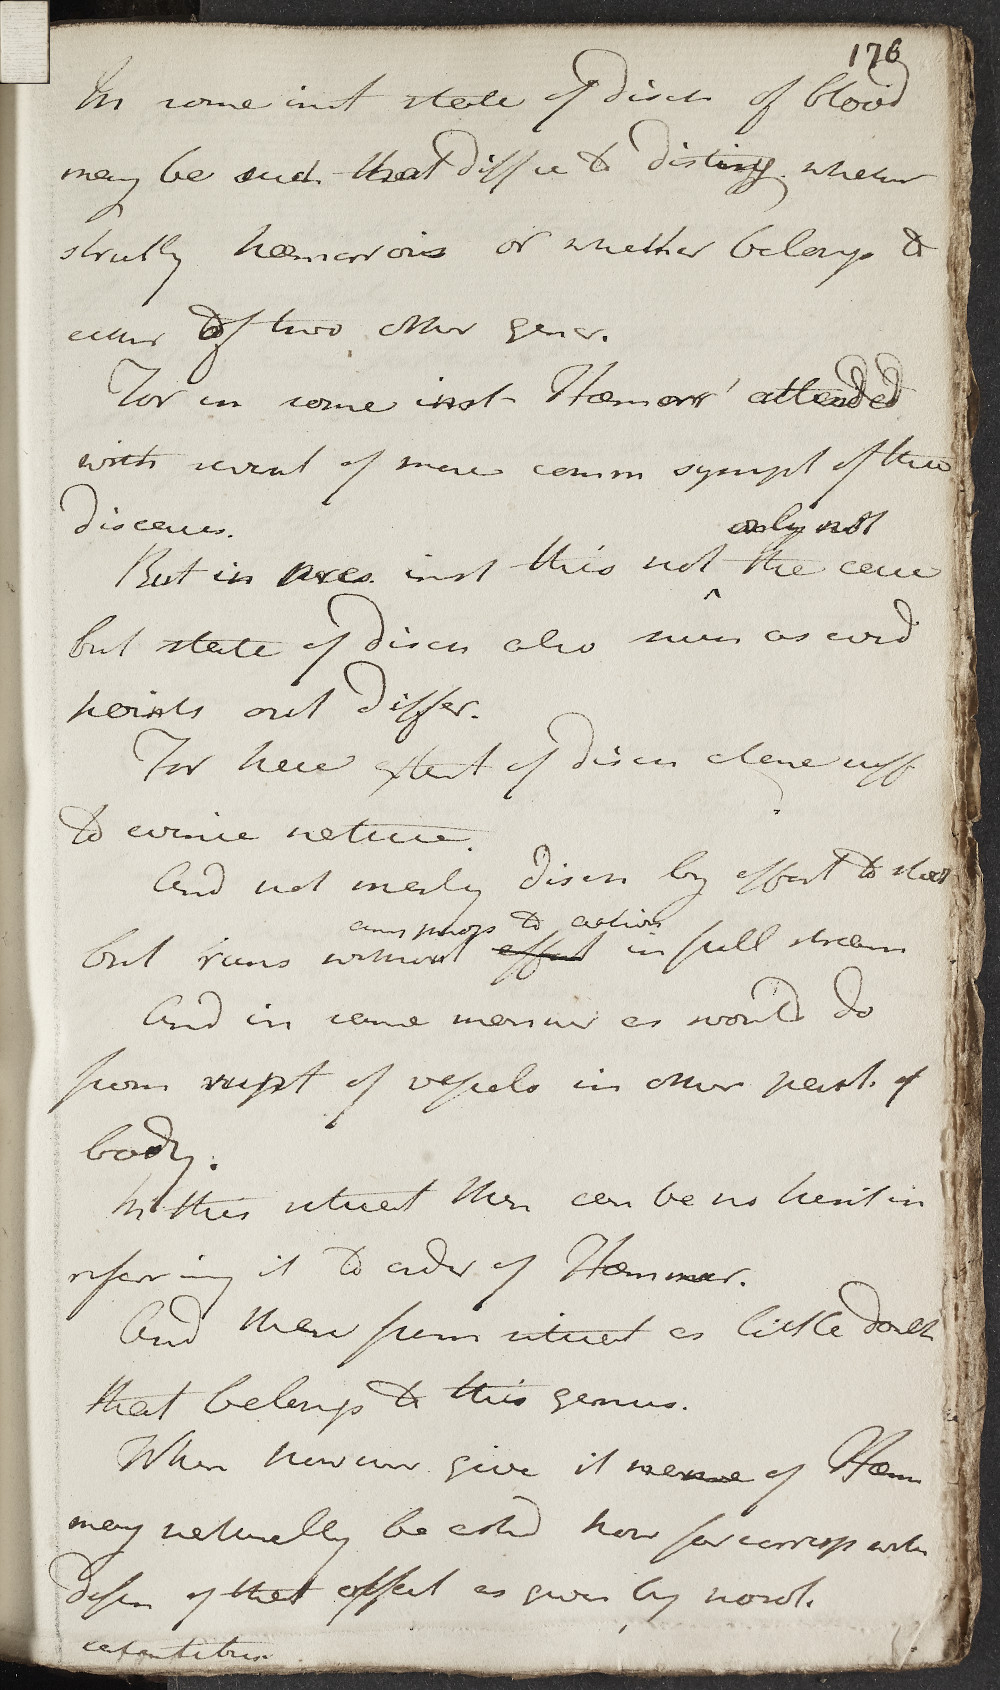 176
In some inst state of disch of blood
may be such that diffic to disting whether
strictly hæmorrois or whether belongs to
either of two other gener.
For in some inst Hæmorr' attended
with several of more comm sympt of these
diseases.
only not
But in pres. inst this not ^ the case
but state of disch also
points out differ.
For here extent of disch alone suff
to evince nature.
And not merely disch by effort to stool
any props to action
but runs without effort in full stream
And in same manner as would do
from rupt of vessels in other part. of
body.
In this situat then can be no hesit in
referring it to order of Hæmorr.
And then from situat as little doubt
that belongs to this genus.
When however give it name of Hæm
may naturally be askd how far corresp with
defin of that affect as given by nosol.